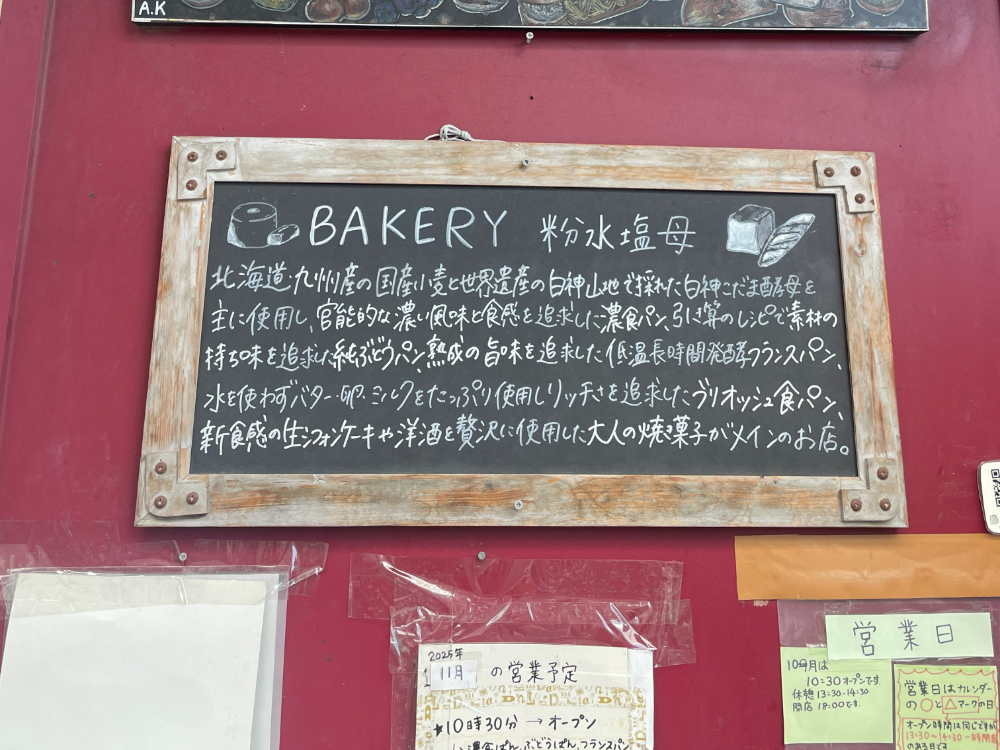 A.K
BAKERY 粉水塩母
北海道・九州産の国産小麦と世界遺産の白神山地で採れた白神こだま酵母を
主に使用し、官能的な濃い風味と食感を追求した濃食パン、引き算のレシピで素材の
持ち味を追求した純ぶどうパン、熟成の旨味を追求した低温長時間発酵フランスパン、
水を使わずバター・卵・ミルクをたっぷり使用しリッチさを追求したブリオッシュ食パン、
新食感の生シフォンケーキや洋酒を贅沢に使用した大人の焼菓子がメインのお店。
2025年
11月 の営業予定
★10時30分 → オープン
濃食ぱん、ぶどうぱん、フランスパン
営業日
10月は
10:30オープンです。
休憩 13:30-14:30
閉店 18:00です。
営業日はカレンダー
の○と△マークの日
オープン時間は同じですが
13:30~14:30 一時閉店
のある日です